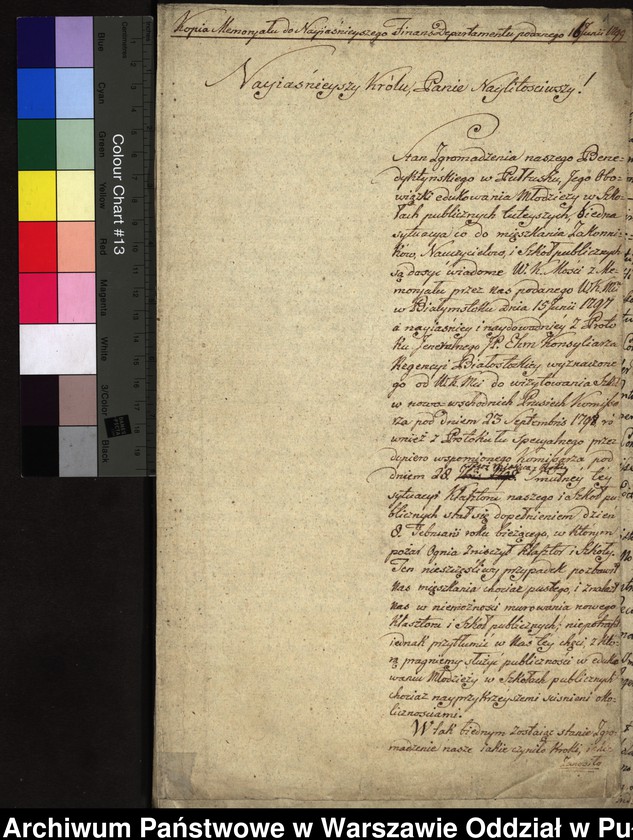 Kopia Memoryału do Nayiaśnieyszego Finans Departamentu podanego 16 Junii 1799
Nayiaśnieyszy Królu, Panie Nayliłościwszy!
Stan Zgromadzenia naszego Bene=
dyktyńskiego w Pułtusku, Jego Obo=
wiązki edukowania Młodzieży w Szko=
łach publicznych tuteyszych, biedna
sytuacya co do mieszkania Zakonni=
ków, Nauczycielow, i Szkoł publicznych
są dosyć wiadome W. K. Mości z Me=
moryału przez nas podanego WKMci
w Białymstoku dnia 15 Junii 1797
a nayiaśniey i naydowodniey z Proto=
kułu Jeneralnego JP. Ehm Konsyliarza
Regencyi Białostockiey wyznaczone=
go od W.K.Mci do wizytowania Szkół
w nowo=wschodnich Prusiech Kommissa=
rza pod dniem 23 Septembris 1798 ró=
wnież z Protokułu Specyalnego prze=
dopiero wspomionego Kommissarza pod
dniem 28
Smutney tey
sytuacyi Klasztoru naszego i Szkoł pu=
blicznych stał się dopełnieniem dzień
8. Februarii roku bieżącego, w którym
pożar Ognia zniszczył Klasztor i Szkoły.
Ten nieszczęśliwy przypadek pozbawił
nas mieszkania chociaż pustego, i znalazł
nas w niemożności murowania nowego
Klasztoru i Szkoł publicznych; niepotrafił
iednak przytłumić w nas tey chęci, z któ=
rą pragniemy służyć publiczności w eduko=
waniu Młodzieży w Szkołach publicznych
chociaż nayprzykrzeyszemi ściśnieni oko=
licznościami.
W tak biednym zostaiąc stanie Zgro=
madzenie nasze iakie czyniło kroki,
Zanosiło
Blue
Cyan
Green
Yellow
Red
Magenta
White
3/Color
Black
Colour Chart #13
Centimetres
Inches
1
2
3
4
5
6
7
8
9
10
11
12
13
14
15
16
17
18
19
Archiwum Państwowe w Warszawie Oddział w Pu